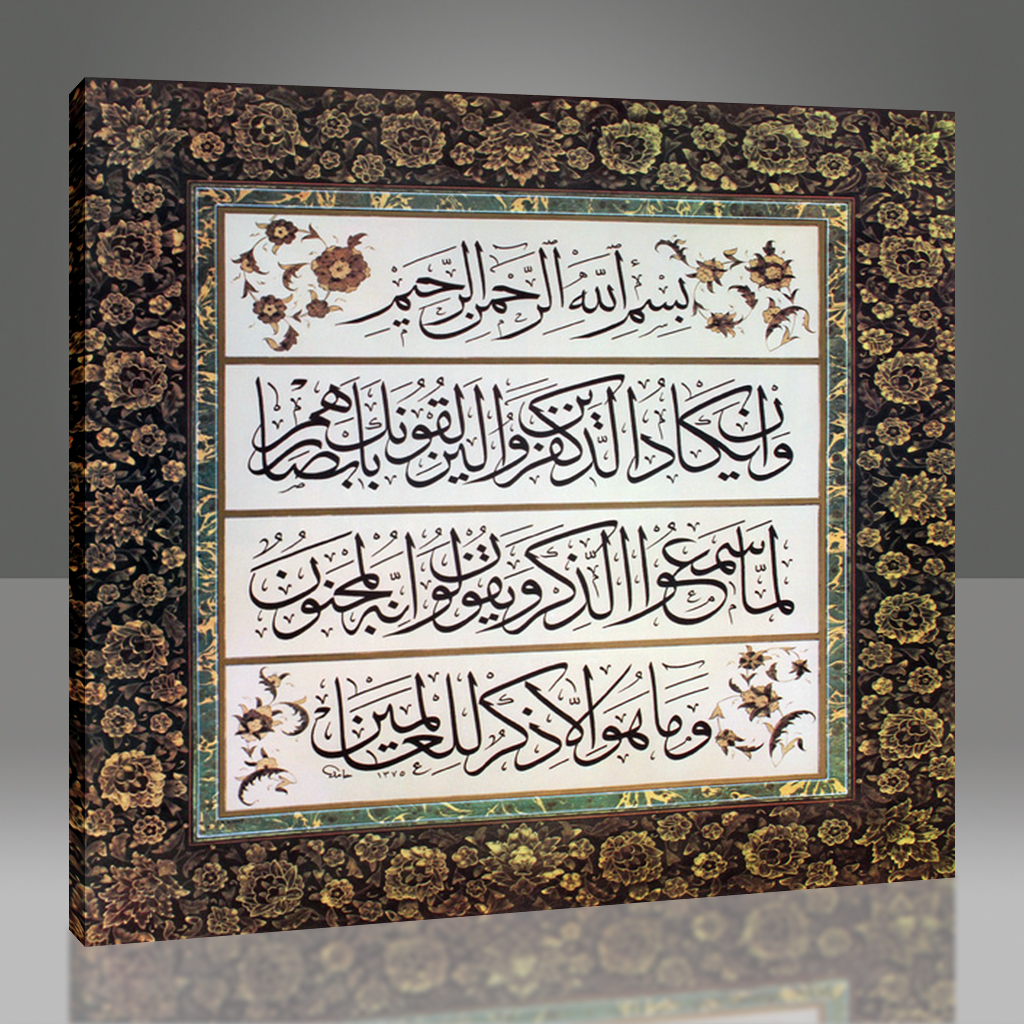 بسم الله الرحمن الرحيم
وان يكاد الذين كفروا ليزلقونك بابصارهم
لما سمعوا الذكر ويقولون انه لمجنون
وما هو الا ذكر للعالمين
١٣٧٥